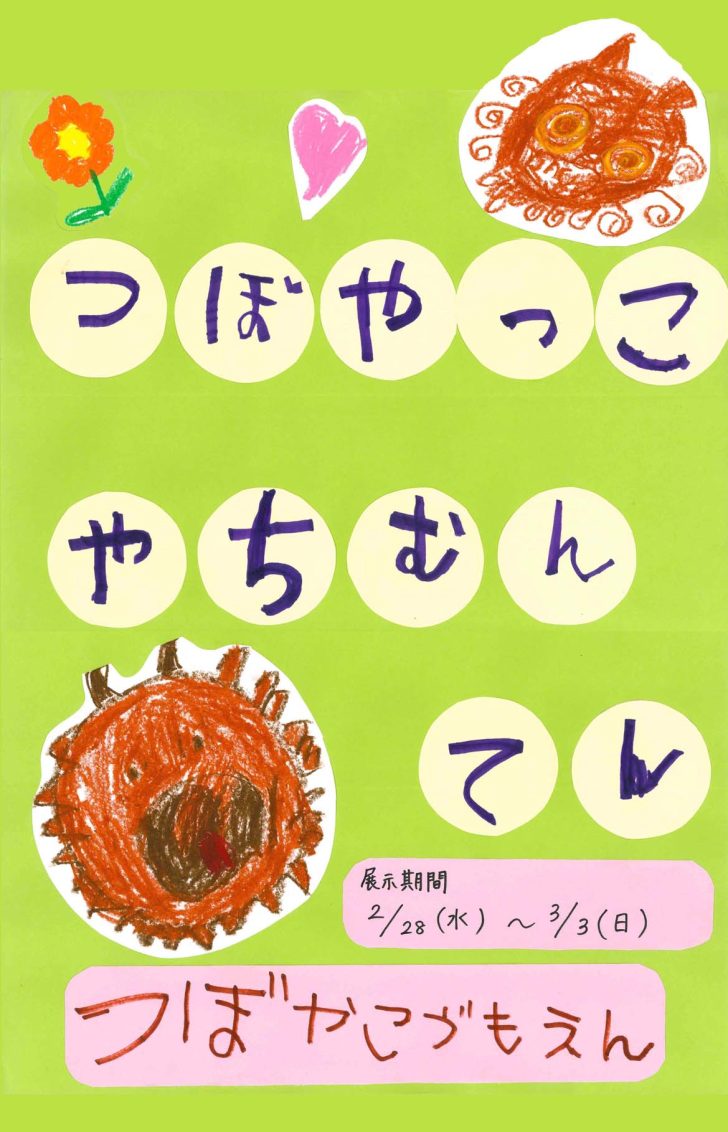 つぼやっこ
やちむん
てん
展示期間
2/28(水) ～ 3/3(日)
つぼやこづもえん